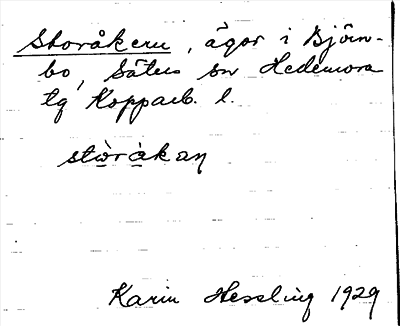 Storåkern, ägor i Björn-
bo, Säters sn Hedemora
tg Kopparb. l.
Karin Hessling 1929